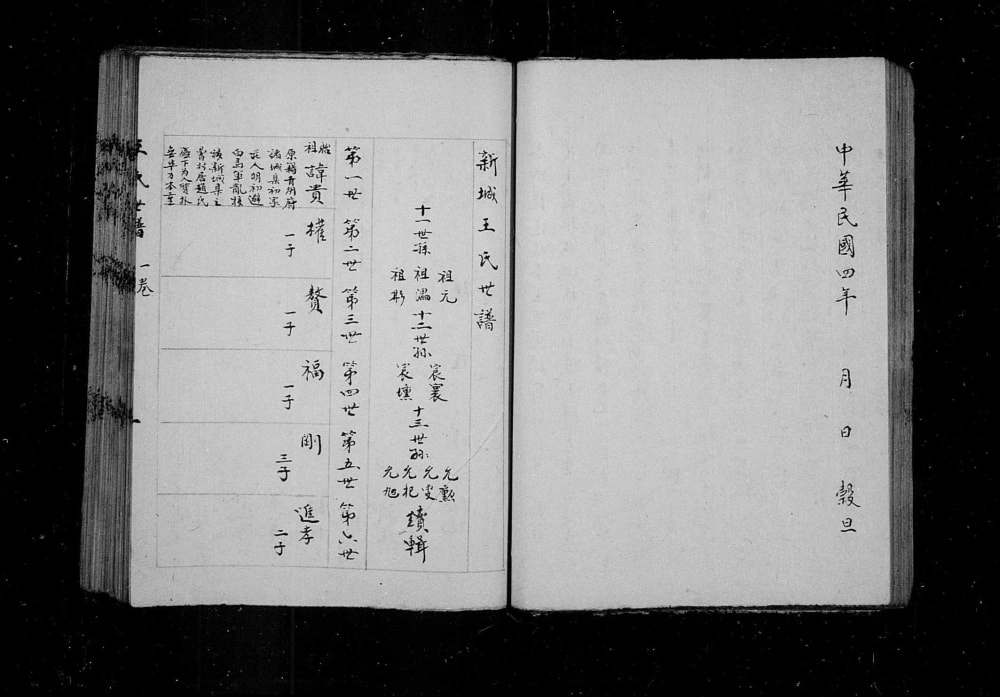 中華民國四年　月　日　穀旦
新城王氏世譜
十一世孫
祖元
祖溫
祖彰
十二世孫
宸襄
宸壎
十三世孫
允勲
允叟
允杞
允旭
續輯
第一世
第二世
第三世
第四世
第五世
第六世
始祖諱貴
原籍青州府
諸城縣初家
莊人明初避
白馬軍亂牧
該新城縣之
曹村居趙氏
為人質朴
權
一子
贅
一子
福
一子
剛
三子
進孝
二子
王氏世譜
一卷